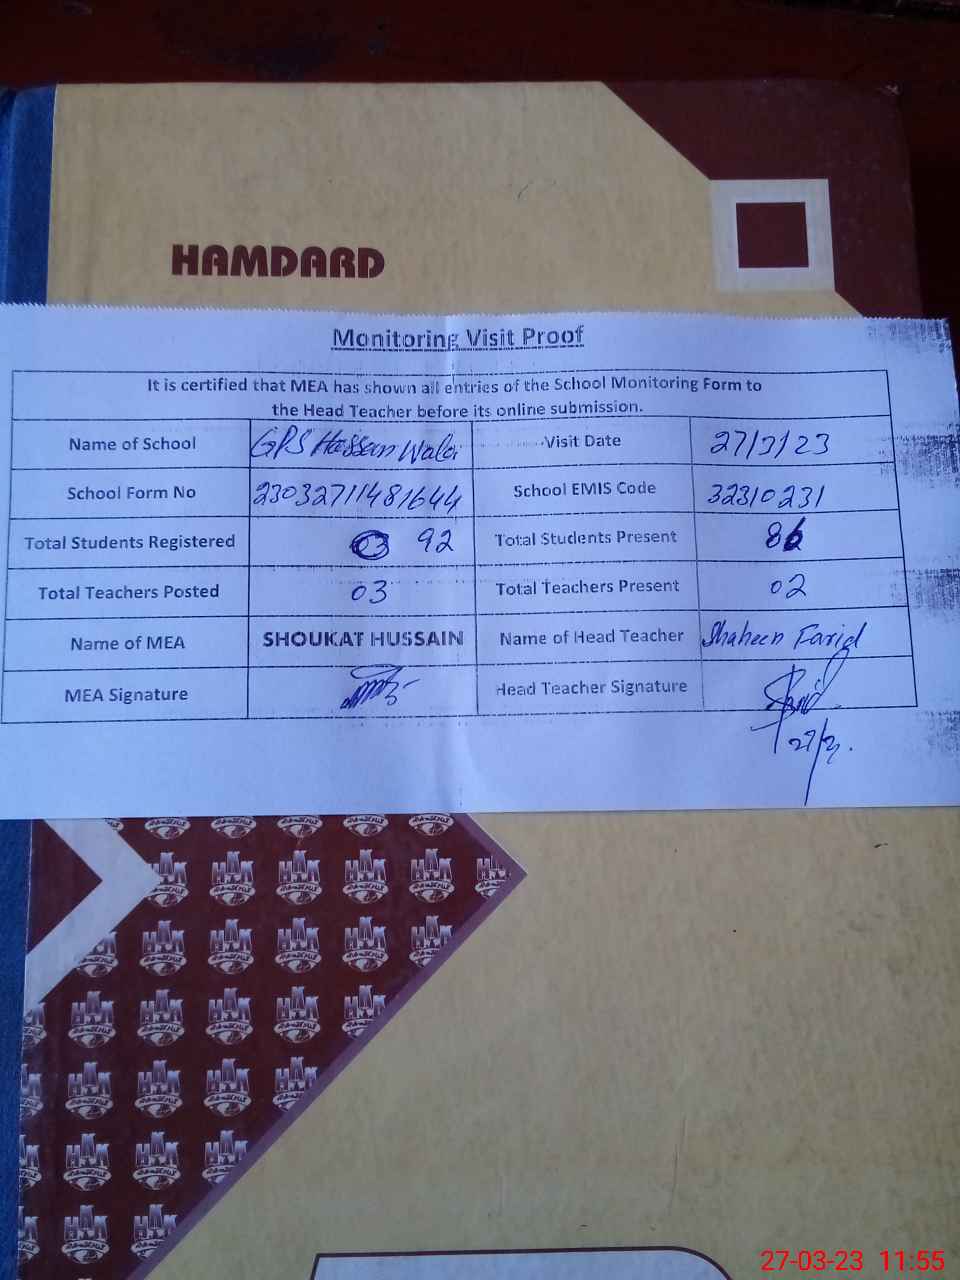 HAMDARD
Monitoring Visit Proof
It is certified that MEA has shown all entries of the School Monitoring Form to
the Head Teacher before its online submission.
Name of School GPS Hassan Wala Visit Date 27/3/23
School Form No 23032711481644 School EMIS Code 32310231
Total Students Registered 92 Total Students Present 86
Total Teachers Posted 03 Total Teachers Present 02
Name of MEA SHOUKAT HUSSAIN Name of Head Teacher Shaheen Farid
MEA Signature Head Teacher Signature
27/3.
27-03-23 11:55